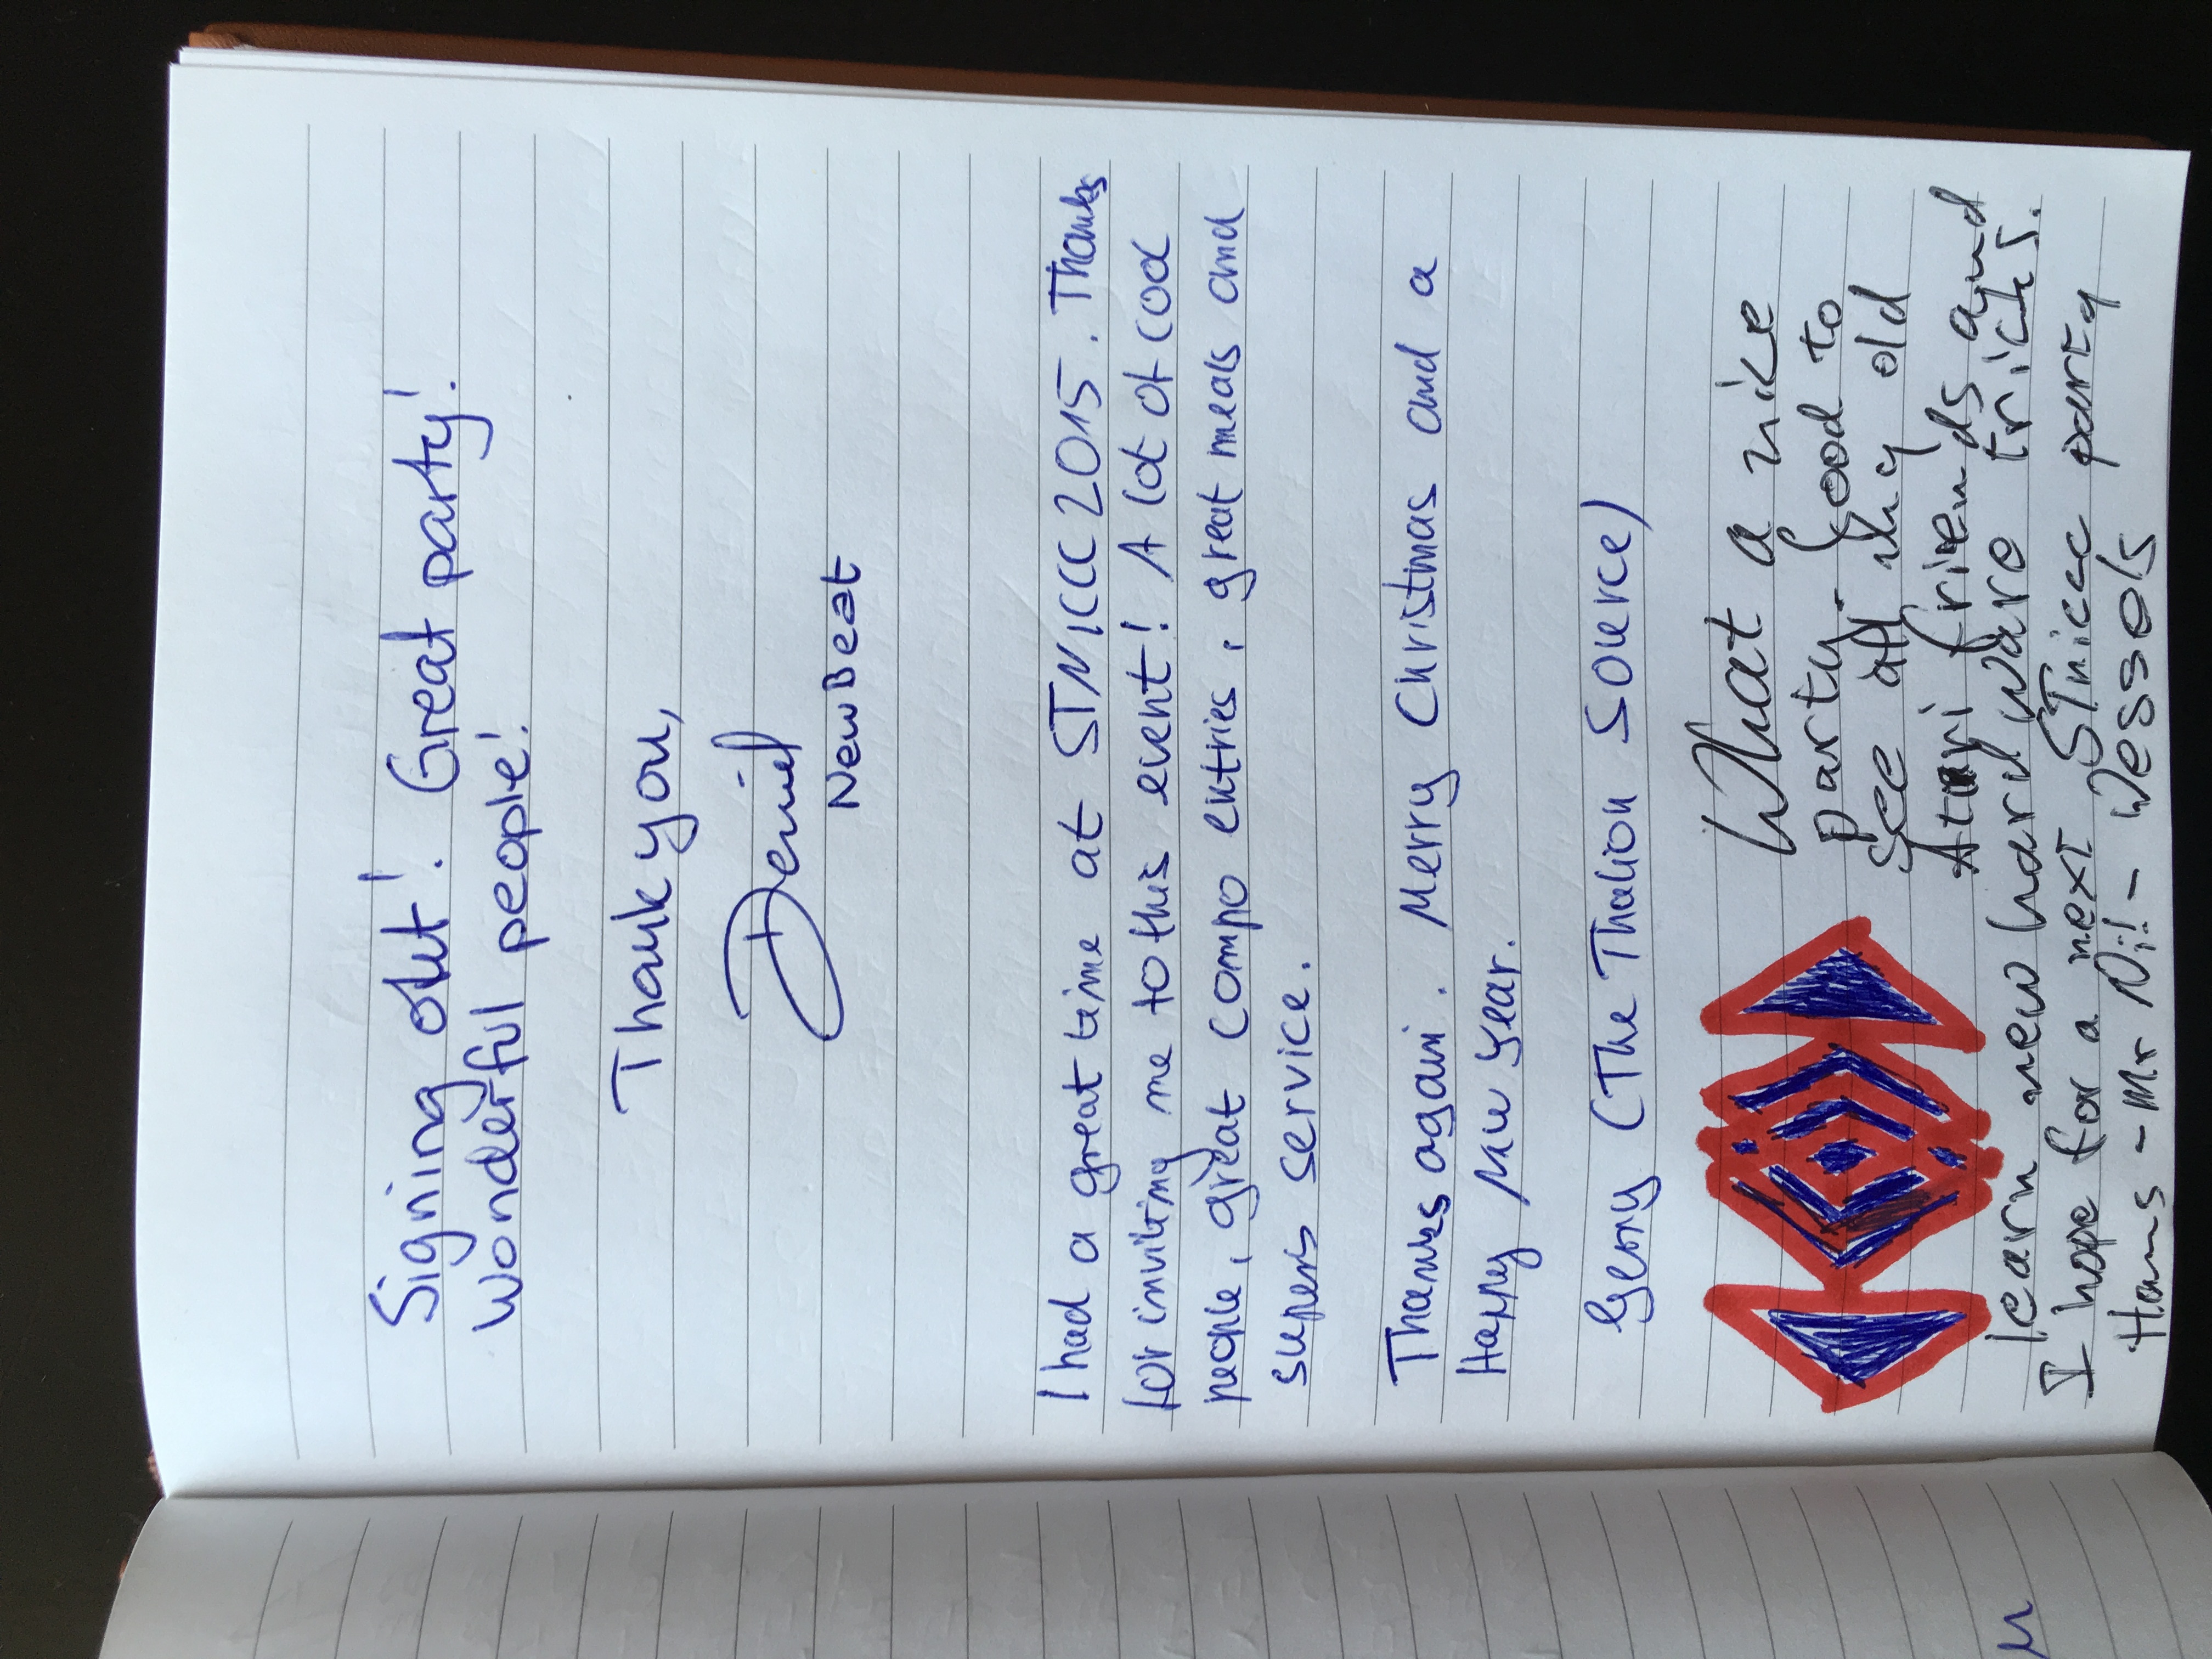 Signing out! Great party!
Wonderful people!
Thank you,
Daniel
NewBeat
I had a great time at STNICCC 2015. Thanks
for inviting me to this event! A lot of cool
people, great compo entries, great meals and
super service.
Thanks again. Merry Christmas and a
Happy New Year.
(The Thalion Source)
What a nice
party. Good to
see all my old
Atari friends and
learn new hardware tricks.
I hope for a next STniccc party
Hans - Mr Ni! - Wessels